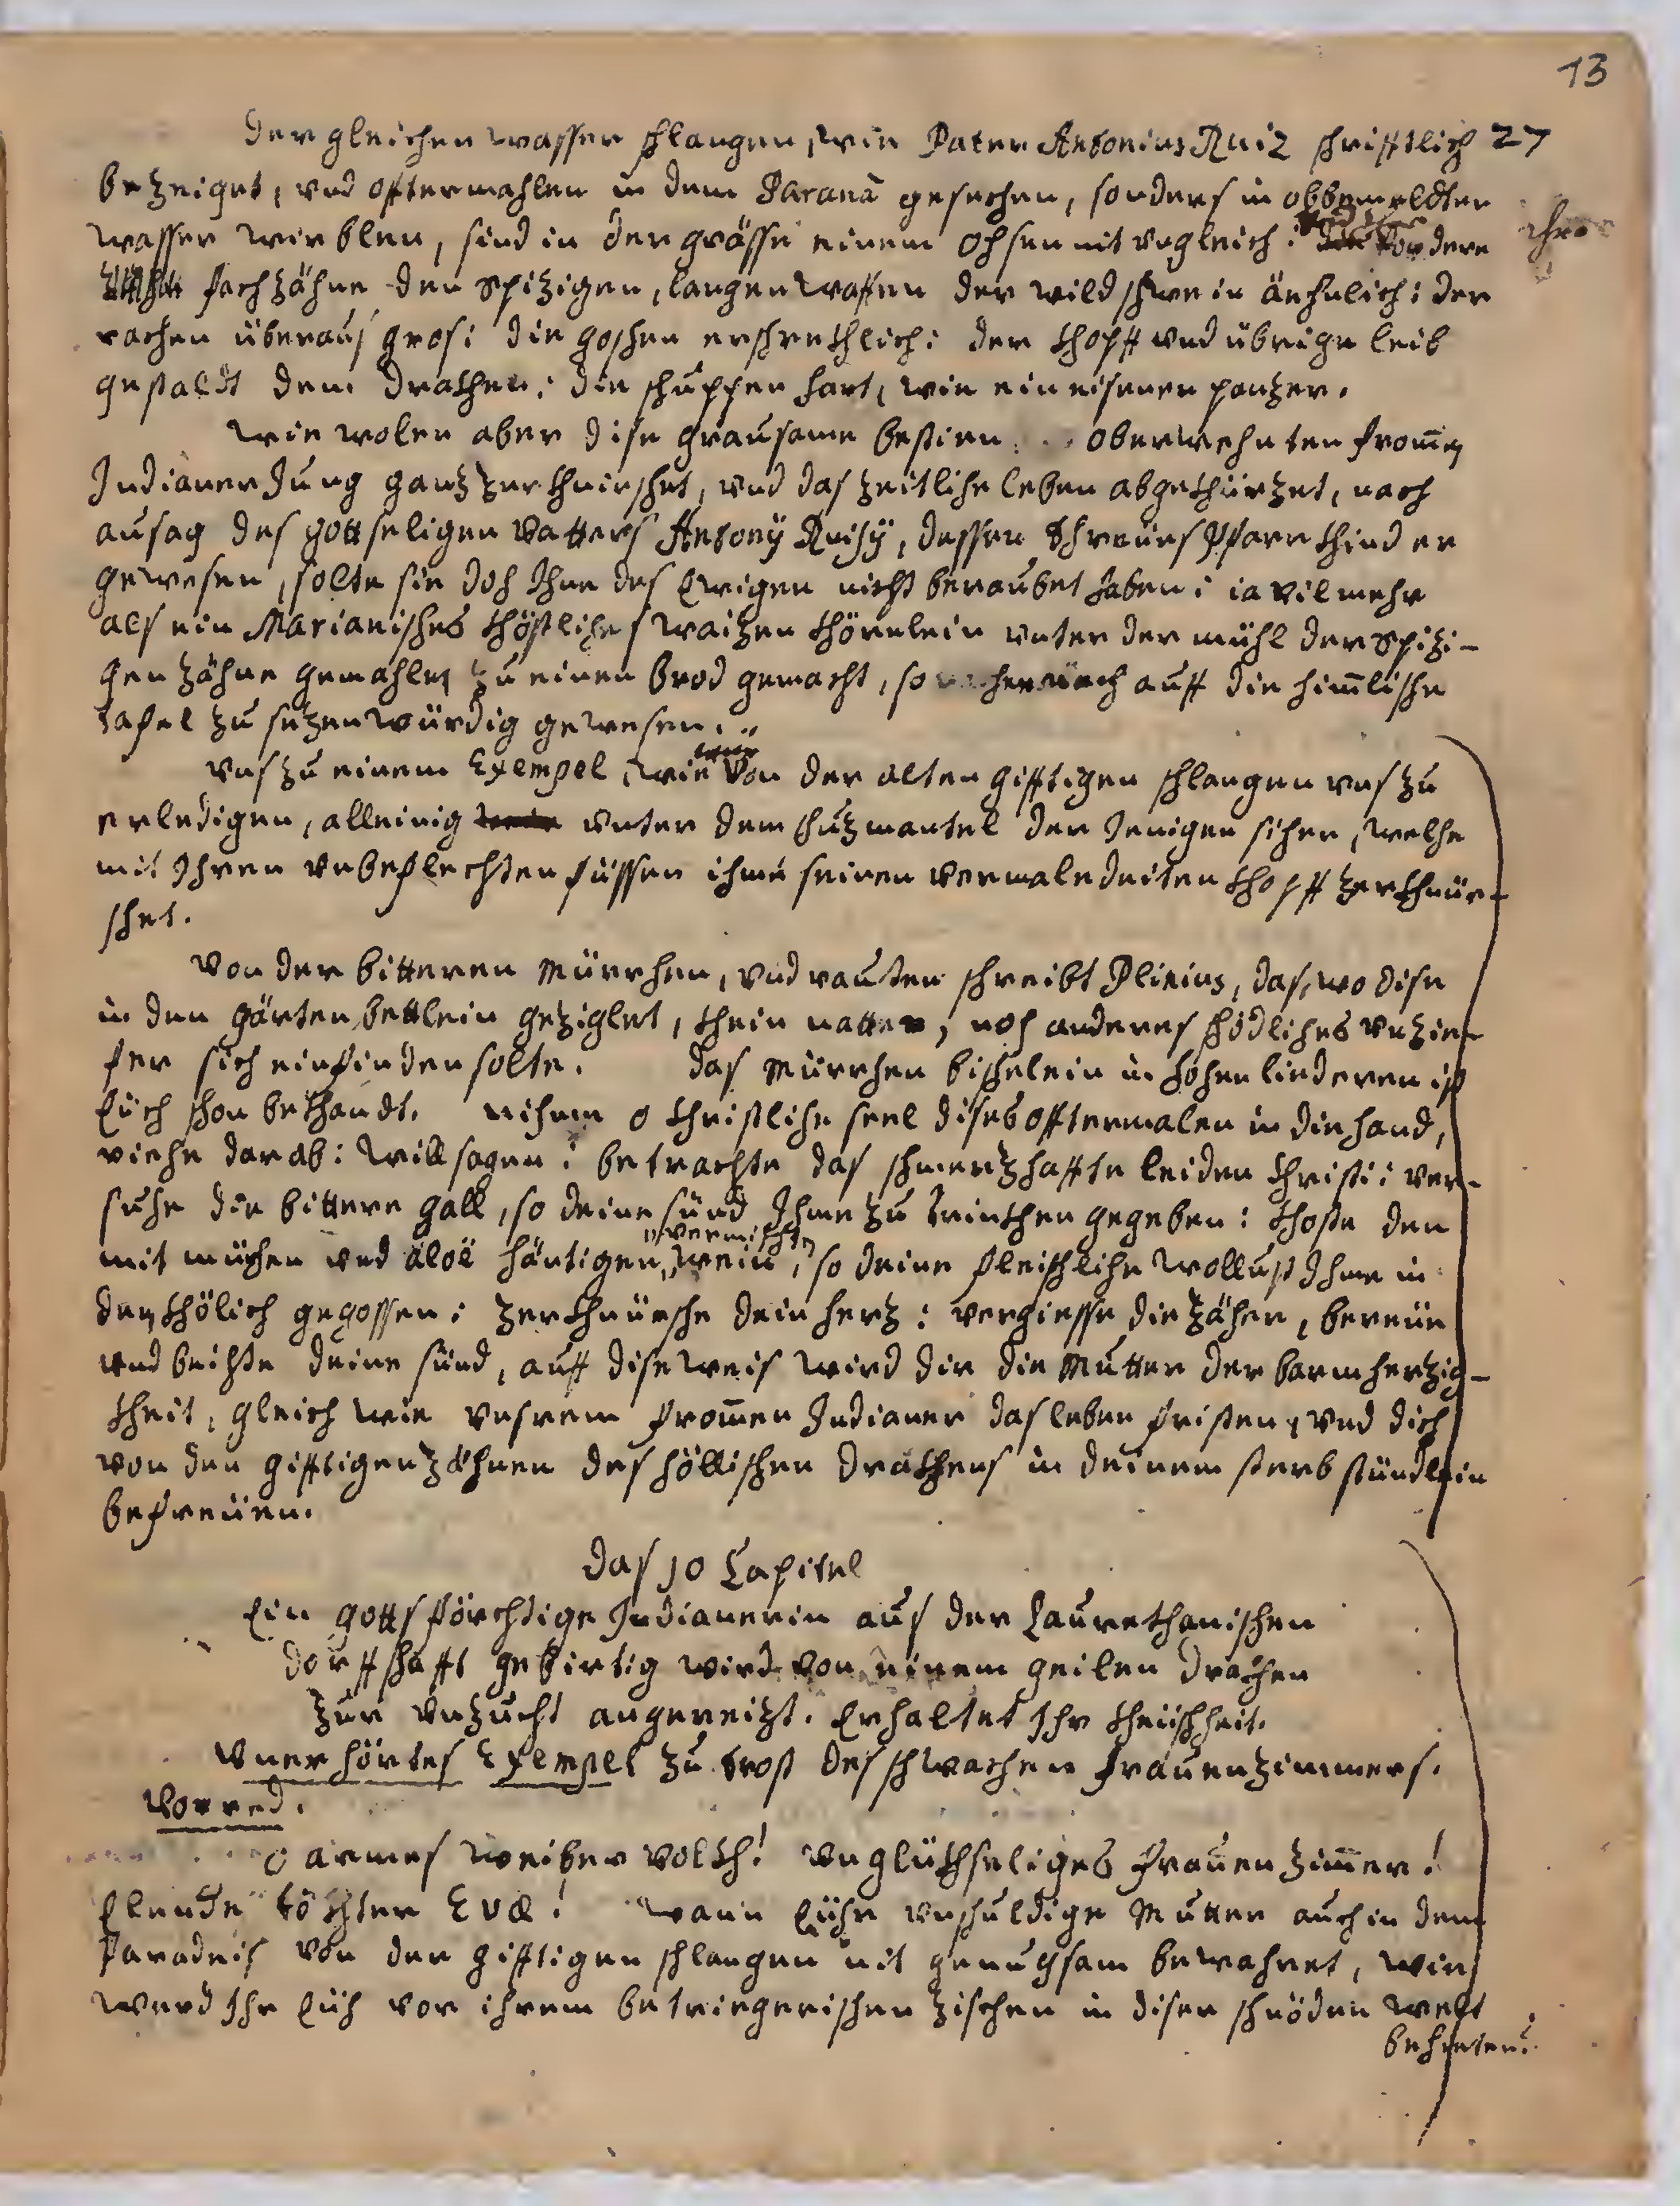 13
der gleichen wasser schlangen, wie Pater Antonius Ruiz schrifftlich 27
bezeiget, vnd offtermahlen in dem Paranà gesechen, sonders in obbemeldten
wasser wirblen, sind in der grösse einem ochsen nit vngleich: vordere ihre
fachzähne den spizigen, langen waffen der wildschwein änhnlich: der
rachen überaus gros: die goschen erschrekhlich: der khopff vnd übrige leib
gestaldt dem drakhen: die schuppen hart, wie ein eisener panzer.
wie wolen aber dise grausame bestien oberwehnten from̅en
Indianer Jung ganz zerkhnirschet, vnd das zeitliche leben abgekhürzet, nach
ausag des gottseligen Vatters Antony Ruisy, dessen threües Pfarrkhind er
gewesen, solte sie doch Ihne des Ewigen nicht beraubet haben: ia vilmehr
als ein Marianisches khöstliches waizen khörnlein vnter der mühl der spizi-
gen zähne gemahlen zu einen brod gemacht, so auff die himlische
tafel zu sezen würdig gewesen.
vns zu einem Exempel, wie von der alten gifftigen schlangen vns zu
erledigen, alleinig vnter dem schuzmantel der Jenigen sicher, welche
mit Ihren vnbeflechten füssen ihme seinen vermaledeiten khopff zerkhnür-
schet.
Von der bitteren Mürrhen, vnd rauten schreibt Plinius, das, wo dise
in den gärten bettlein geziglet, khein natter, noch anderes schädliches vnzie-
fer sich einfinden solte. das Mürrhen bischelein in hohen liederen ist
Eüch schon bekhandt. nihme o christliche seel dises offtermalen in die hand,
rieche darab: will sagen: betrachte das schmerzhaffte leiden Christi: ver-
suche die bittere gall, so deine sünd Ihme zu trinkhen gegeben: khoste den
mit mürhen vnd aloë häutigen vermischten wein, so deine fleischliche wollust Ihme in
den khölich gegossen: zerkhnürsche dein herz: vergiesse die zäher, bereüe
vnd beichte deine sünd, auff dise weis wird dir die Mutter der barmherzig-
kheit, gleich wie vnsrem from̅en Indianer das leben fristen, vnd dich
von den gifftigen zähnen des höllischen drakhens in deinem sterbstündlein
befreüen.
das 10 Capitel
Ein gottsförchtige Indianerin aus der Laurethanischen
dorffschafft gebirtig wird von einem geilen drachen
zur vnzucht angereizt. Erhaltet Ihr kheüschheit.
Vnerhörtes Exempel zu trost des schwachen frauenzimmers.
Vorred.
O armes weiber volkh! vnglükhseliges frauenzim̅er!
Elende töchter Evæ! wann Eühr vnschuldige Mutter auch in dem
Paradeis von der gifftigen schlangen nit genugsam bewahret, wie
werd Ihr Eüch vor ihrem betriegerischen zischen in diser schnöden welt
behieten?